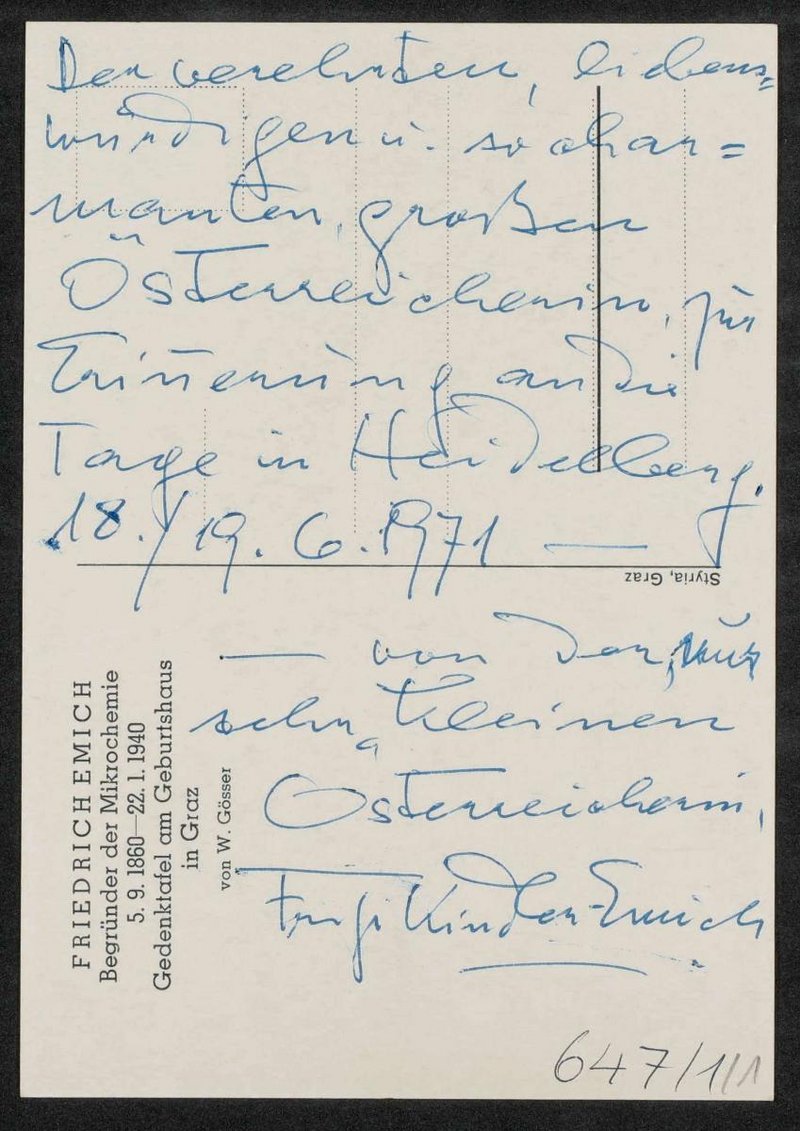 Der verehrten, liebens=
würdigen u. so char=
manten, großen
Österreicherin, zur
Erinnerung an die
Tage in Heidelberg.
18./19. 6. 1971 —
Styria, Graz
— von der, nur
sehr kleinen
Österreicherin,
Kindler-Emich
FRIEDRICH EMICH
Begründer der Mikrochemie
5. 9. 1860—22. 1. 1940
Gedenktafel am Geburtshaus
in Graz
von W. Gösser
647/1/1